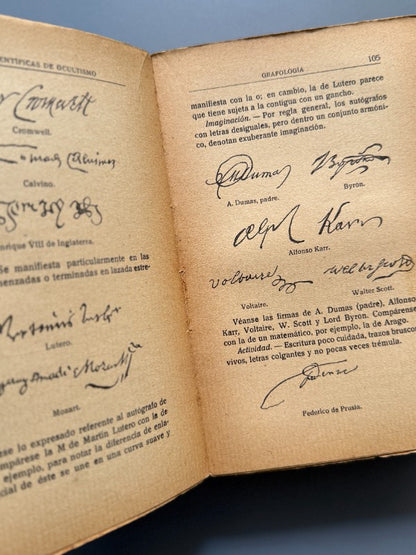 ENTÍFICAS DE OCULTISMO
Cromwell
Cromwell.
Calvino.
nrique VIII de Inglaterra.
Se manifiesta particularmente en las
menzadas o terminadas en lazada estre-
Lutero.
Mozart
Mozart.
se lo expresado referente al autógrafo de
mpárese la M de Martín Lutero con la de
ejemplo, para notar la diferencia de enla-
cial de éste se une en una curva suave y
GRAFOLOGÍA 105
manifiesta con la o; en cambio, la de Lutero parece
que tiene sujeta a la contigua con un gancho.
Imaginación. — Por regla general, los autógrafos
con letras desiguales, pero dentro un conjunto armóni-
co, denotan exuberante imaginación.
Dumas Byron
A. Dumas, padre. Byron.
Alph Karr
Alfonso Karr.
Voltaire
Voltaire. Walter Scott.
Véanse las firmas de A. Dumas (padre), Alfonso
Karr, Voltaire, W. Scott y Lord Byron. Compárense
con la de un matemático, por ejemplo, la de Arago.
Actividad. — Escritura poco cuidada, trazos bruscos,
vivos, letras colgantes y no pocas veces trémula.
Federico de Prusia.